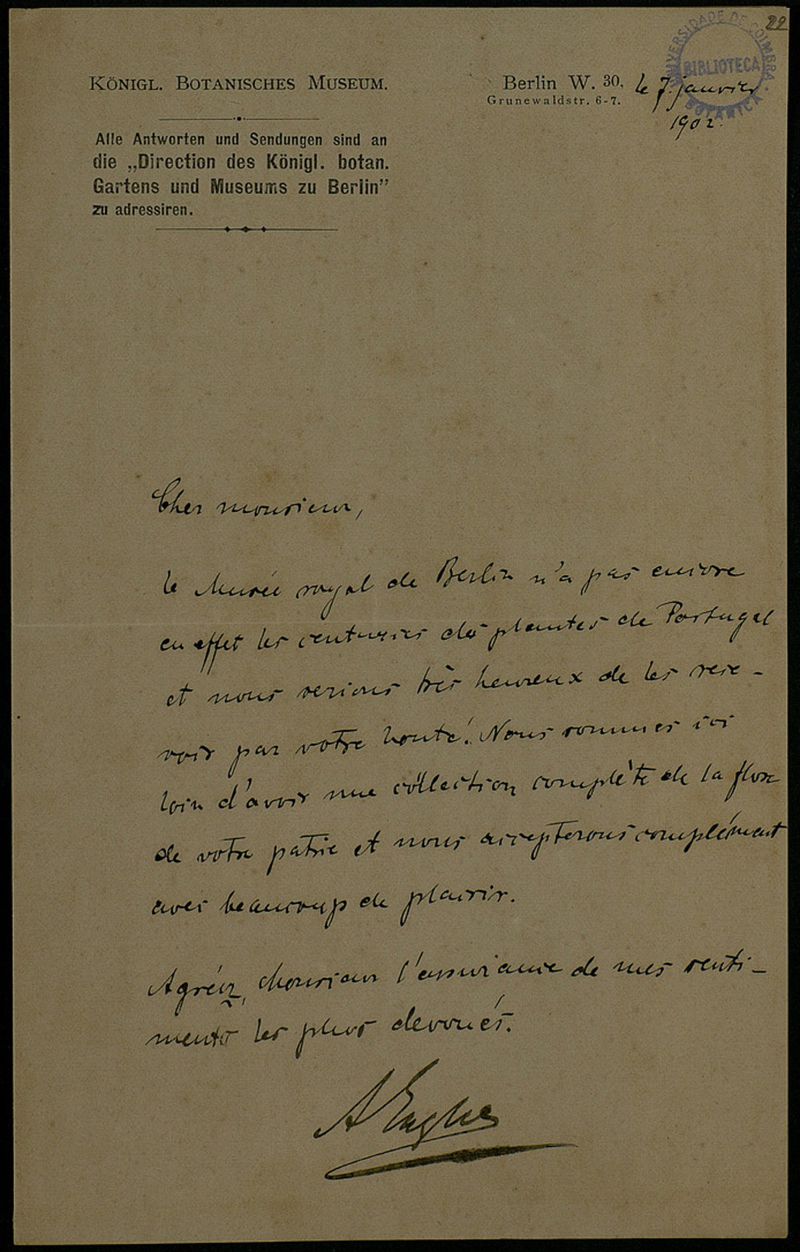 22
UNIVERSIDADE DE COIMBRA
BIBLIOTECA
BOTANICA
KÖNIGL. BOTANISCHES MUSEUM.
Berlin W. 30, le 7 janvier
Grunewaldstr. 6-7.
1902.
Alle Antworten und Sendungen sind an
die „Direction des Königl. botan.
Gartens und Museums zu Berlin”
zu adressiren.
Cher monsieur,
le Musée royal de Berlin n'a pas encore
en effet les centuries des plantes de Portugal
et nous serions très heureux de les rece-
voir par votre bonté! Nous sommes ici
loin d'avoir une collection complète de la flore
de votre patrie et nous accepterons complément
avec beaucoup de plaisir.
Agréez, Monsieur l'assurance de mes senti-
ments les plus devoués.
A Engler